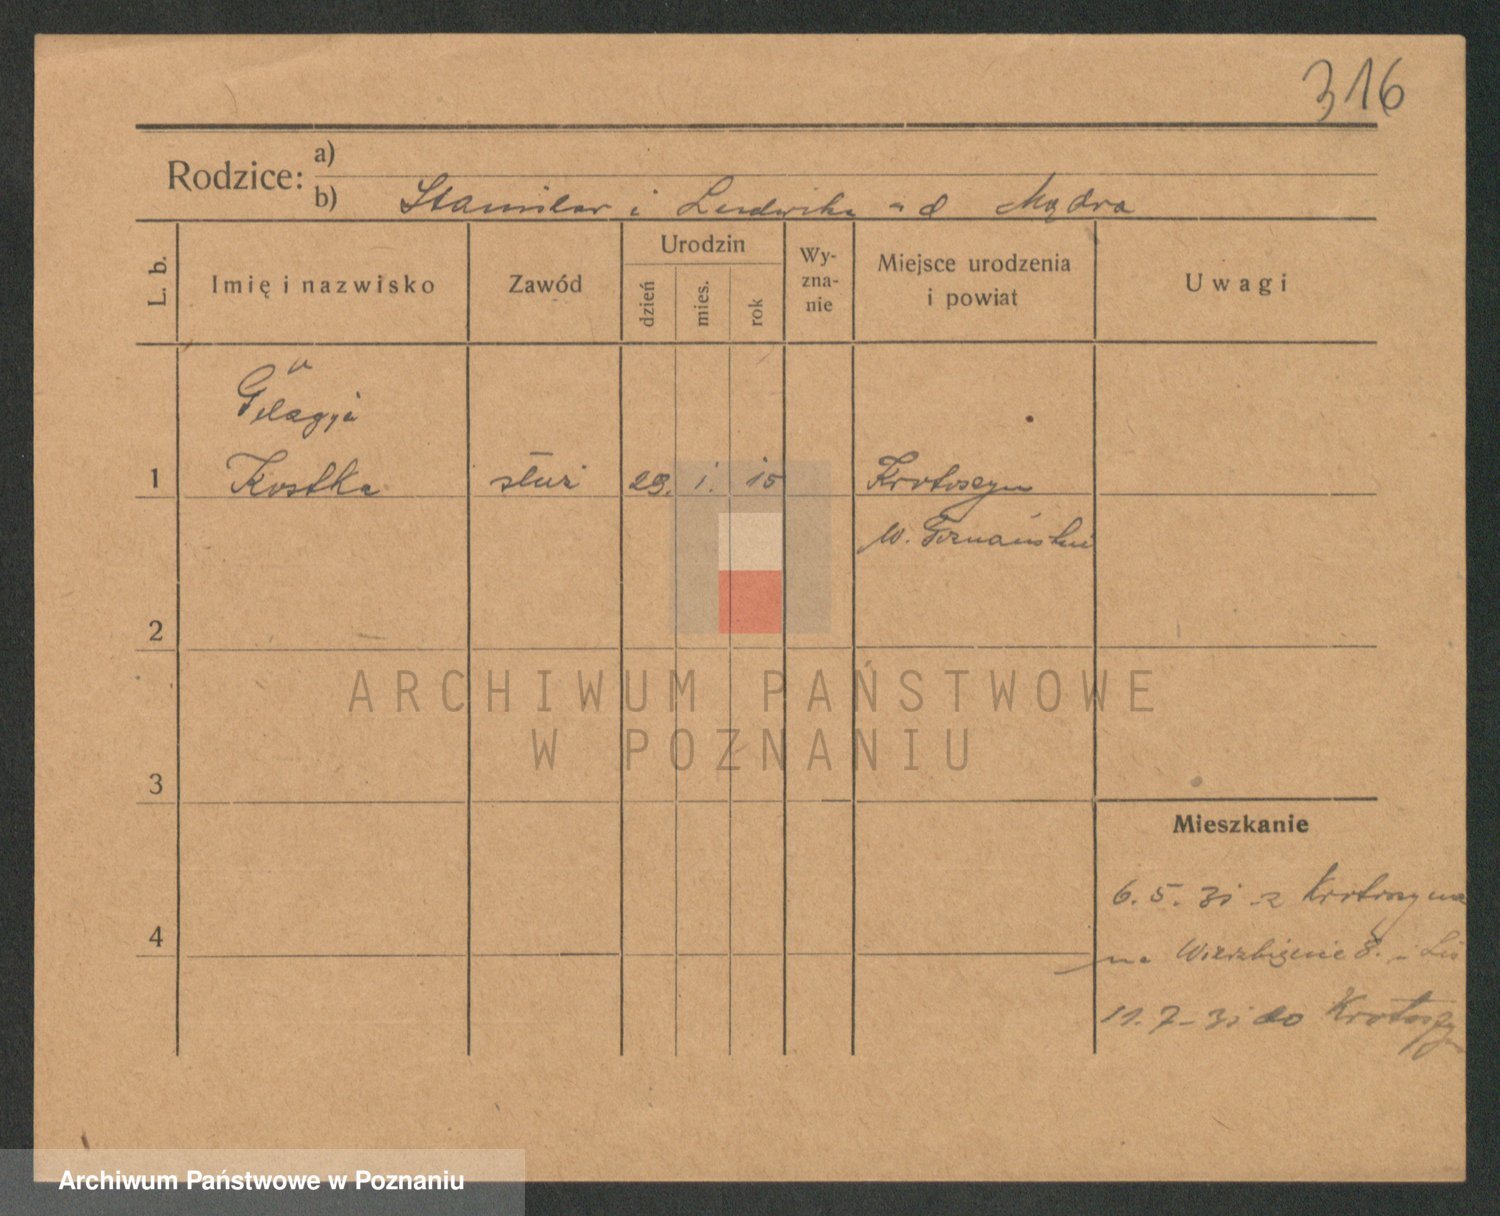 316
Rodzice: a)
b) Stanisław i Ludwika z d Mądra
L. b.
Imię i nazwisko
Zawód
Urodzin
dzień
mies.
rok
Wy-
zna-
nie
Miejsce urodzenia
i powiat
Uwagi
Pelagja
1 Kostka służ 29. 1. 15 Krotoszyn
w. Poznański
2
3
4
Mieszkanie
6. 5. 31 z Krotoszyna
na Wierzbięcie 8.
11. 7. 31 do Krotoszyn
ARCHIWUM PAŃSTWOWE
W POZNANIU
Archiwum Państwowe w Poznaniu